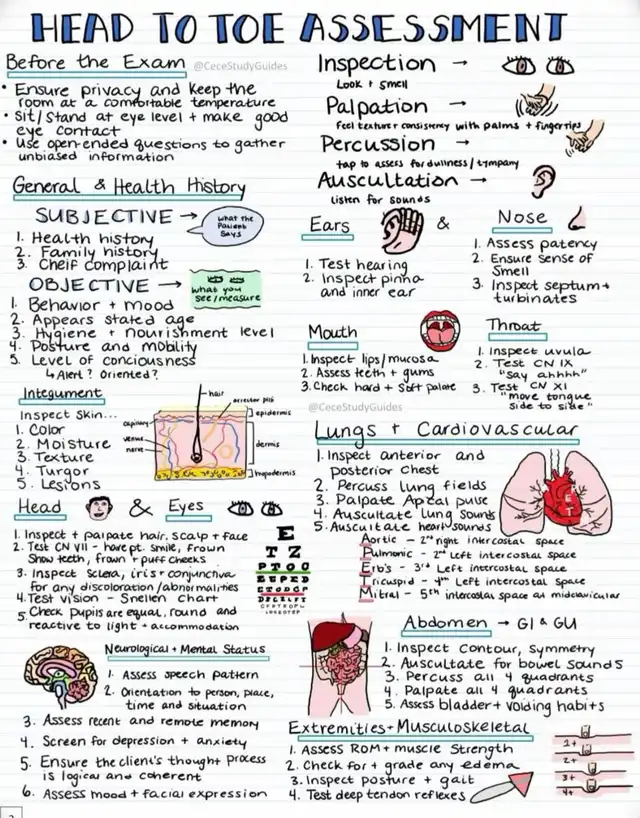 HEAD TO TOE ASSESSMENT
Before the Exam
@CeceStudyGuides
• Ensure privacy and keep the
room at a comfortable temperature
• Sit/Stand at eye level + make good
eye contact
• Use open-ended questions to gather
unbiased information
Inspection →
Look + smell
Palpation →
Feel texture + consistency with palms + fingertips
Percussion →
tap to assess for dullness/tympany
Auscultation →
listen for sounds
General & Health History
SUBJECTIVE →
what the
Patient
Says
1. Health history
2. Family history
3. Cheif complaint
OBJECTIVE →
what you
see/measure
1. Behavior + mood
2. Appears stated age
3. Hygiene + nourishment level
4. Posture and mobility
5. Level of conciousness
↳ Alert? Oriented?
Ears
&
Nose
1. Test hearing
2. Inspect pinna
and inner ear
1. Assess patency
2. Ensure sense of
smell
3. Inspect septum +
turbinates
Mouth
1. Inspect lips/mucosa
2. Assess teeth + gums
3. Check hard + soft palate
Throat
1. Inspect uvula
2. Test CN IX
"say ahhhh"
3. Test CN XI
"move tongue
side to side"
@CeceStudyGuides
Integument
Inspect Skin...
1. Color
2. Moisture
3. Texture
4. Turgor
5. Lesions
hair
arrector pili
capillary
venus
nerve
epidermis
dermis
hypodermis
Head
&
Eyes
1. Inspect + palpate hair, scalp + face
2. Test CN VII - have pt. smile, frown
Show teeth, frown + puff cheeks
3. Inspect sclera, iris + conjunctiva
for any discoloration/abnormalities
4. Test vision - Snellen chart
5. Check pupils are equal, round and
reactive to light + accommodation
E
T Z
Lungs + Cardiovascular
1. Inspect anterior and
posterior chest
2. Percuss lung fields
3. Palpate Apical pulse
4. Auscultate lung sounds
5. Auscultate heart sounds
Aortic - 2nd right intercostal space
Pulmonic - 2nd Left intercostal space
Erb's - 3rd Left intercostal space
Tricuspid - 4th Left intercostal space
Mitral - 5th intercostal space at midclavicular
Neurological + Mental Status
1. Assess speech pattern
2. Orientation to person, place,
time and situation
3. Assess recent and remote memory
4. Screen for depression + anxiety
5. Ensure the client's thought process
is logical and coherent
6. Assess mood + facial expression
Abdomen → GI & GU
1. Inspect contour, symmetry
2. Auscultate for bowel sounds
3. Percuss all 4 quadrants
4. Palpate all 4 quadrants
5. Assess bladder + voiding habits
Extremities + Musculoskeletal
1. Assess ROM + muscle strength
2. Check for + grade any edema
3. Inspect posture + gait
4. Test deep tendon reflexes
1+
2+
3+
4+